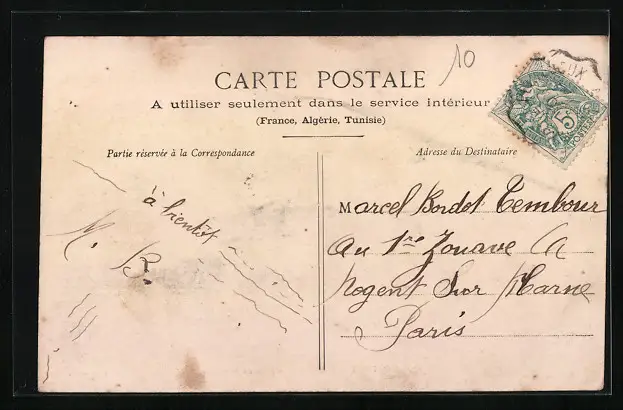 10
CARTE POSTALE
A utiliser seulement dans le service intérieur
(France, Algérie, Tunisie)
Partie réservée à la Correspondance
à bientôt
M. B.
Adresse du Destinataire
Marcel Bordet Tembour
au 1re Zouave
Nogent Sur Marne
Paris
5